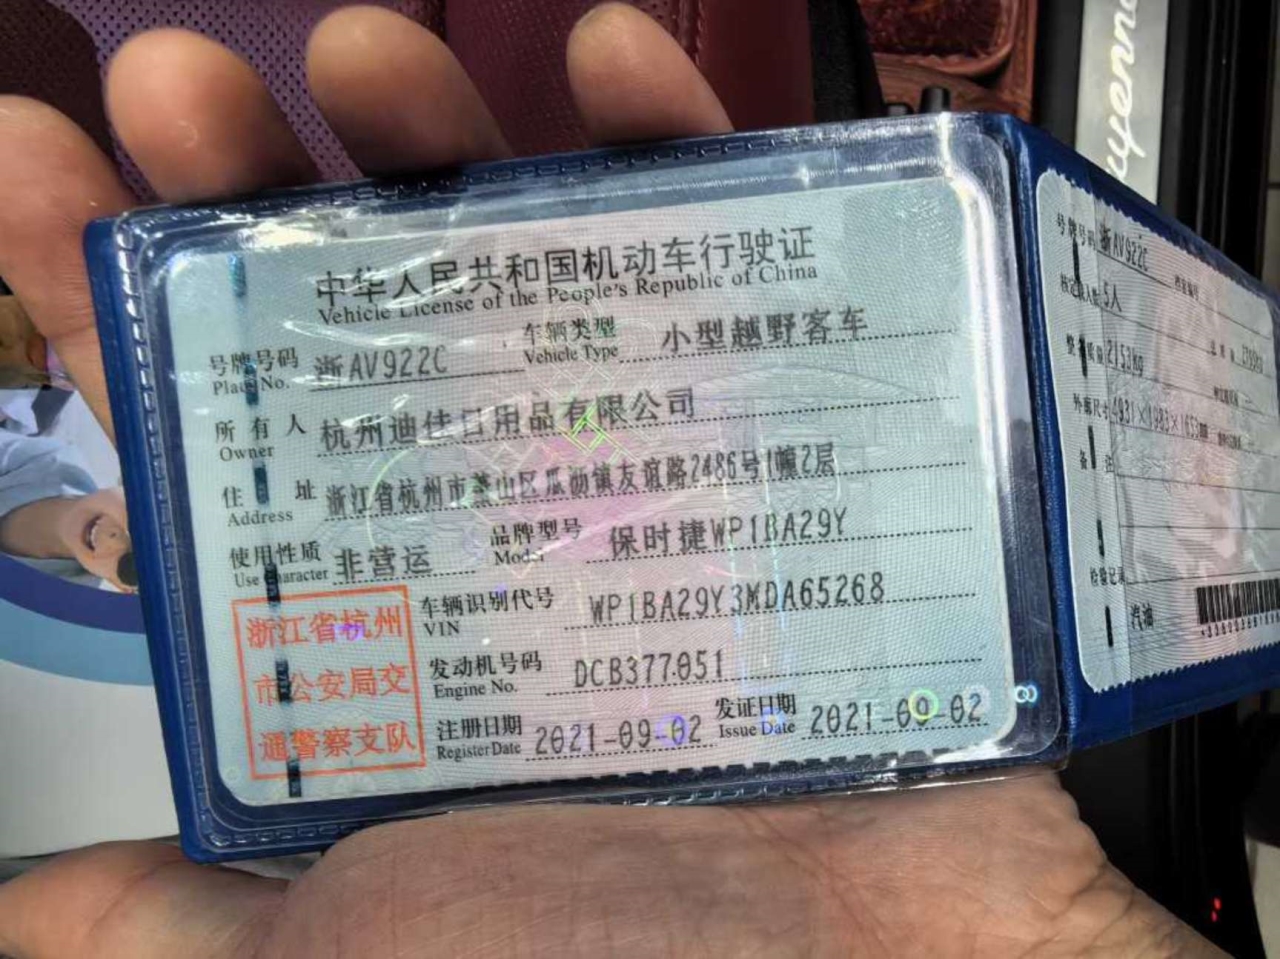 中华人民共和国机动车行驶证
Vehicle License of the People's Republic of China
号牌号码 浙AV922C 车辆类型 小型越野客车
Plate No. Vehicle Type
所有人 杭州迪佳日用品有限公司
Owner
住址 浙江省杭州市萧山区瓜沥镇友谊路2486号1幢2层
Address
使用性质 非营运 品牌型号 保时捷WP1BA29Y
Use Character Model
车辆识别代号 WP1BA29Y3MDA65268
VIN
发动机号码 DCB377051
Engine No.
注册日期 2021-09-02 发证日期 2021-09-02
Register Date Issue Date
浙江省杭州
市公安局交
通警察支队
号牌号码 浙AV922C
5人
2153kg
外廓尺寸
备注
检验记录
汽油